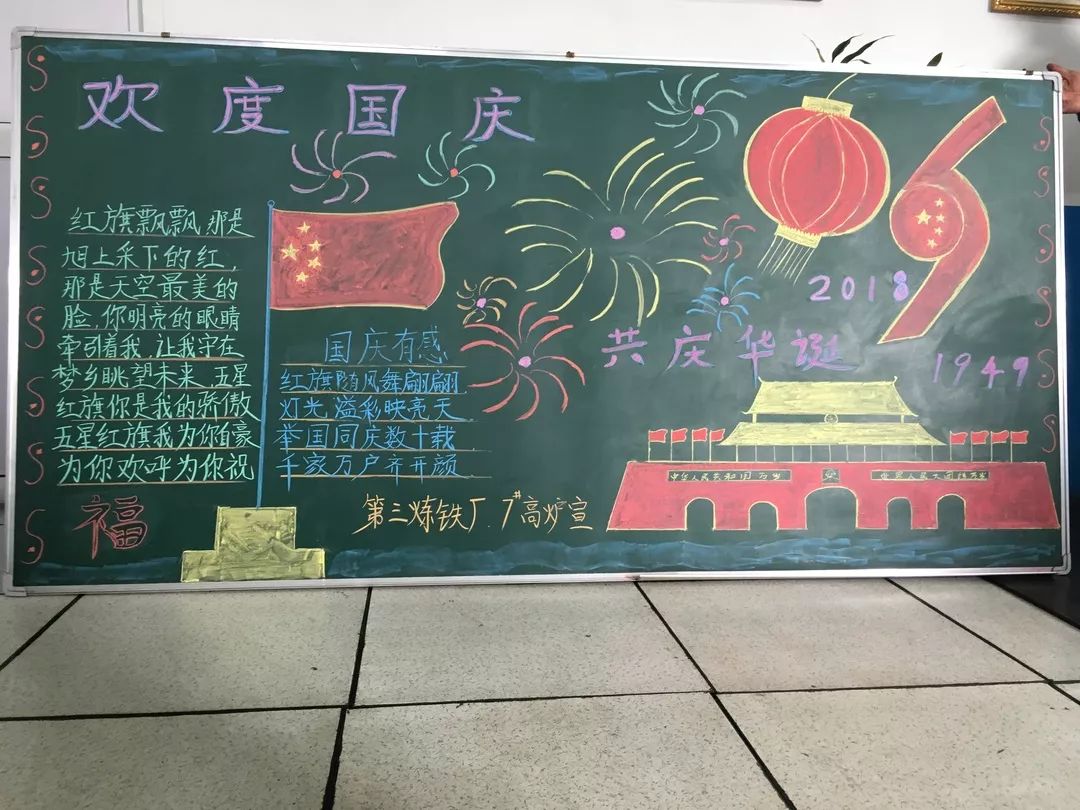 欢度国庆
红旗飘飘,那是
旭上采下的红,
那是天空最美的
脸,你明亮的眼睛
牵引着我,让我守在
梦乡眺望未来,五星
红旗你是我的骄傲
五星红旗我为你自豪
为你欢呼为你祝
福
国庆有感
红旗随风舞翩翩
灯光溢彩映亮天
举国同庆数十载
千家万户齐开颜
第三炼铁厂.7#高炉宣
2018
共庆华诞
1949
中华人民共和国万岁
世界人民大团结万岁